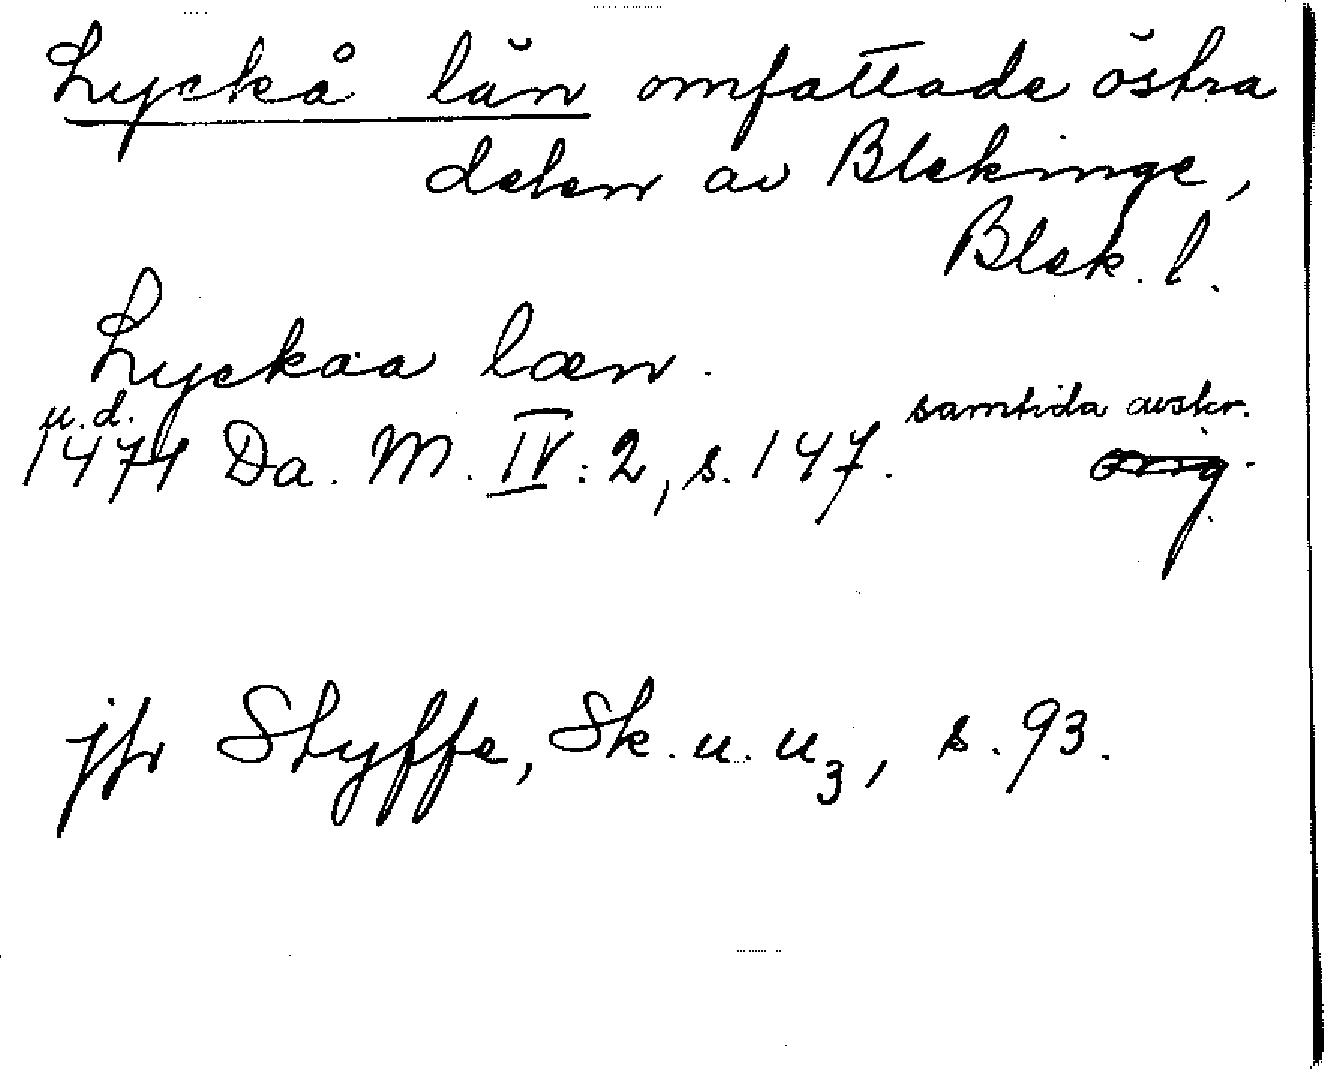 Lyckå län omfattade östra
delen av Blekinge,
Blek. l.
Lyckaa læn.
u.d. samtida avskr.
1474 Da. M. IV: 2, s. 147. orig.
jfr Styffe, Sk. u. u3, s. 93.